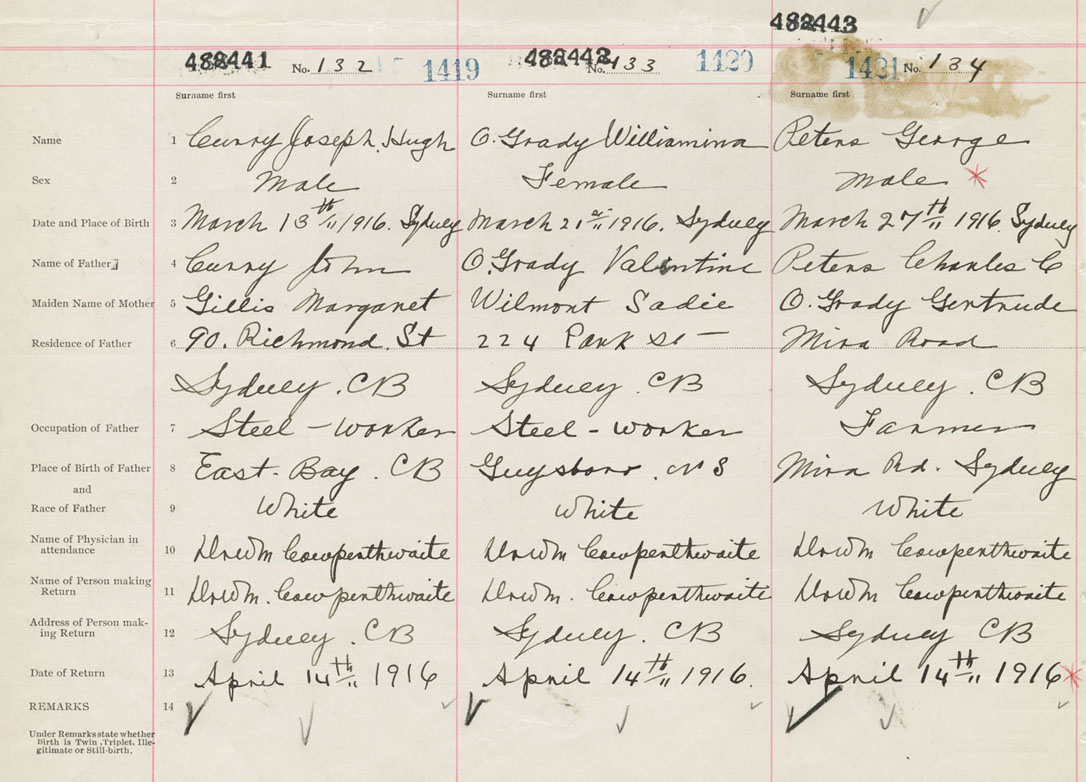 482443
482441 No. 132 1419 482442 No. 133 1420 1421 No. 134
Surname first Surname first Surname first
Name 1 Curry Joseph. Hugh O.Grady Williamina Peters George
Sex 2 Male Female male *
Date and Place of Birth 3 March 13th 1916. Sydney March 21st 1916. Sydney March 27th 1916 Sydney
Name of Father 4 Curry John O.Grady Valentine Peters Charles C
Maiden Name of Mother 5 Gillis Margaret Wilmont Sadie O.Grady Gertrude
Residence of Father 6 90. Richmond. St 224 Park St — Mira Road
Sydney. CB Sydney. CB Sydney. CB
Occupation of Father 7 Steel-worker Steel-worker Farmer
Place of Birth of Father 8 East. Bay. CB Guysboro. NS Mira Rd. Sydney
and
Race of Father 9 White White White
Name of Physician in
attendance 10 Cowpenthwaite Cowpenthwaite Cowpenthwaite
Name of Person making
Return 11 Cowpenthwaite Cowpenthwaite Cowpenthwaite
Address of Person mak-
ing Return 12 Sydney. CB Sydney. CB Sydney CB
Date of Return 13 April 14th 1916 April 14th 1916. April 14th 1916 *
REMARKS 14
Under Remarks state whether
Birth is Twin, Triplet, Ille-
gitimate or Still-birth.